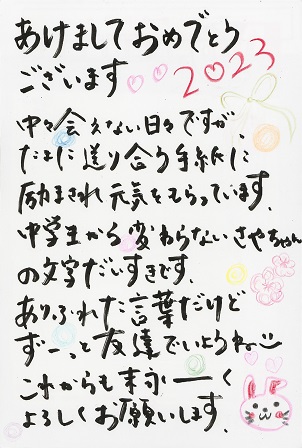 あけましておめでとう
ございます
2023
中々会えない日々ですが、
たまに送り合う手紙に
励まされ元気をもらっています。
中学生から変わらないさやちゃん
の文字だいすきです。
ありふれた言葉だけど
ずーっと友達でいようね
これからも末永ーーく
よろしくお願いします。